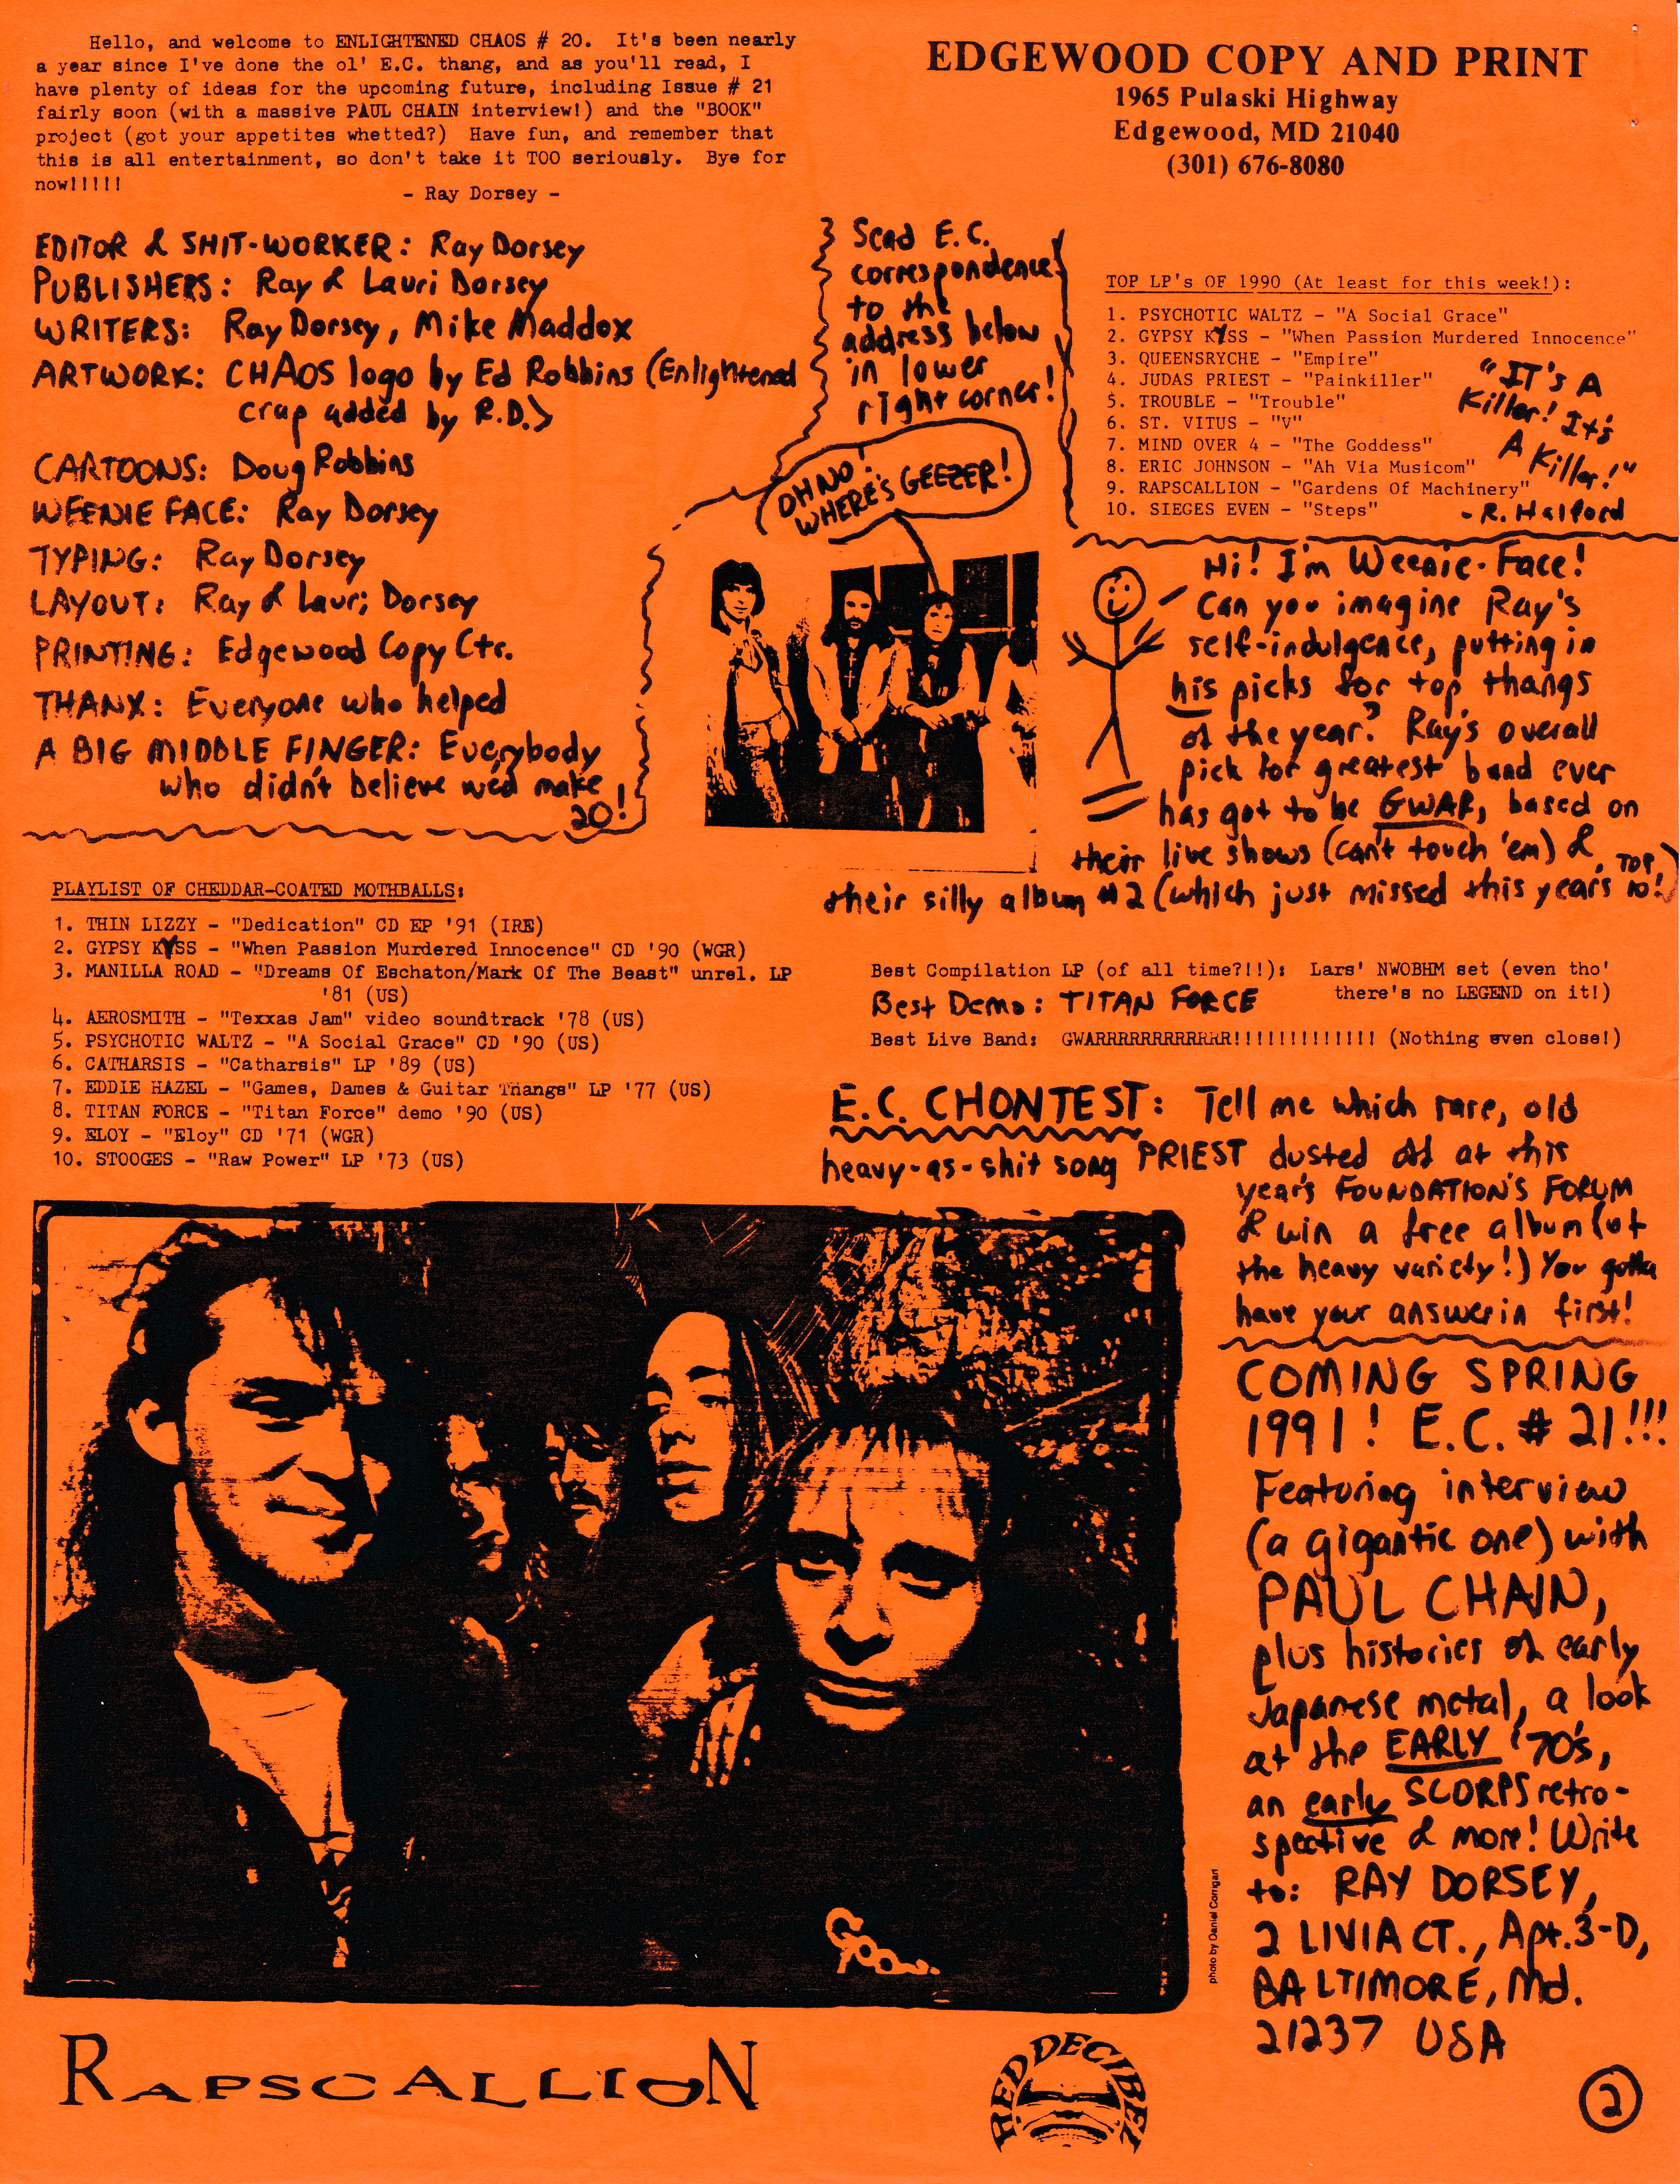 Hello, and welcome to ENLIGHTENED CHAOS # 20. It's been nearly
a year since I've done the ol' E.C. thang, and as you'll read, I
have plenty of ideas for the upcoming future, including Issue # 21
fairly soon (with a massive PAUL CHAIN interview!) and the "BOOK"
project (got your appetites whetted?) Have fun, and remember that
this is all entertainment, so don't take it TOO seriously. Bye for
now!!!!!
- Ray Dorsey -
EDGEWOOD COPY AND PRINT
1965 Pulaski Highway
Edgewood, MD 21040
(301) 676-8080
EDITOR & SHIT-WORKER: Ray Dorsey
PUBLISHERS: Ray & Lauri Dorsey
WRITERS: Ray Dorsey, Mike Maddox
ARTWORK: CHAOS logo by Ed Robbins (Enlightened
crap added by R.D.)
CARTOONS: Doug Robbins
WEENIE FACE: Ray Dorsey
TYPING: Ray Dorsey
LAYOUT: Ray & Lauri Dorsey
PRINTING: Edgewood Copy Ctr.
THANX: Everyone who helped
A BIG MIDDLE FINGER: Everybody
who didn't believe we'd make
20!
Send E.C.
correspondence
to the
address below
in lower
right corner!
OH NO!
WHERE'S GEEZER!
TOP LP's OF 1990 (At least for this week!):
1. PSYCHOTIC WALTZ - "A Social Grace"
2. GYPSY KYSS - "When Passion Murdered Innocence"
3. QUEENSRYCHE - "Empire"
4. JUDAS PRIEST - "Painkiller"
5. TROUBLE - "Trouble"
6. ST. VITUS - "V"
7. MIND OVER 4 - "The Goddess"
8. ERIC JOHNSON - "Ah Via Musicom"
9. RAPSCALLION - "Gardens Of Machinery"
10. SIEGES EVEN - "Steps"
"IT'S A
Killer! It's
A Killer!"
- R. Halford
Hi! I'm Weenie-Face!
Can you imagine Ray's
self-indulgence, putting in
his picks for top thangs
of the year? Ray's overall
pick for greatest band ever
has got to be GWAR, based on
their live shows (can't touch 'em) &
their silly album #2 (which just missed this years TOP
10!)
PLAYLIST OF CHEDDAR-COATED MOTHBALLS:
1. THIN LIZZY - "Dedication" CD EP '91 (IRE)
2. GYPSY KYSS - "When Passion Murdered Innocence" CD '90 (WGR)
3. MANILLA ROAD - "Dreams Of Eschaton/Mark Of The Beast" unrel. LP
'81 (US)
4. AEROSMITH - "Texxas Jam" video soundtrack '78 (US)
5. PSYCHOTIC WALTZ - "A Social Grace" CD '90 (US)
6. CATHARSIS - "Catharsis" LP '89 (US)
7. EDDIE HAZEL - "Games, Dames & Guitar Thangs" LP '77 (US)
8. TITAN FORCE - "Titan Force" demo '90 (US)
9. ELOY - "Eloy" CD '71 (WGR)
10. STOOGES - "Raw Power" LP '73 (US)
Best Compilation LP (of all time?!!): Lars' NWOBHM set (even tho'
there's no LEGEND on it!)
Best Demo: TITAN FORCE
Best Live Band: GWARRRRRRRRRRRR!!!!!!!!!!!!!! (Nothing even close!)
E.C. CHONTEST: Tell me which rare, old
heavy-as-shit song PRIEST dusted off at this
year's FOUNDATION'S FORUM
& win a free album (of
the heavy variety!) You gotta
have your answer in first!
COMING SPRING
1991! E.C. # 21!!!
Featuring interview
(a gigantic one) with
PAUL CHAIN,
plus histories of early
Japanese metal, a look
at the EARLY '70's,
an early SCORPS retro-
spective & more! Write
to: RAY DORSEY,
2 LIVIA CT., Apt. 3-D,
BALTIMORE, Md.
21237 USA
photo by Daniel Corrigan
RAPSCALLION
RED DECIBEL
2